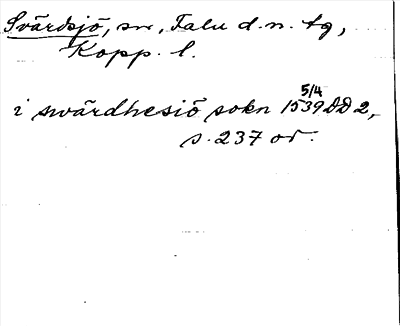 Svärdsjö, sn, Falu d.n. tg,
Kopp. l.
i swärdhesiö sokn 1539 5/4 DD 2,
s. 237 or.